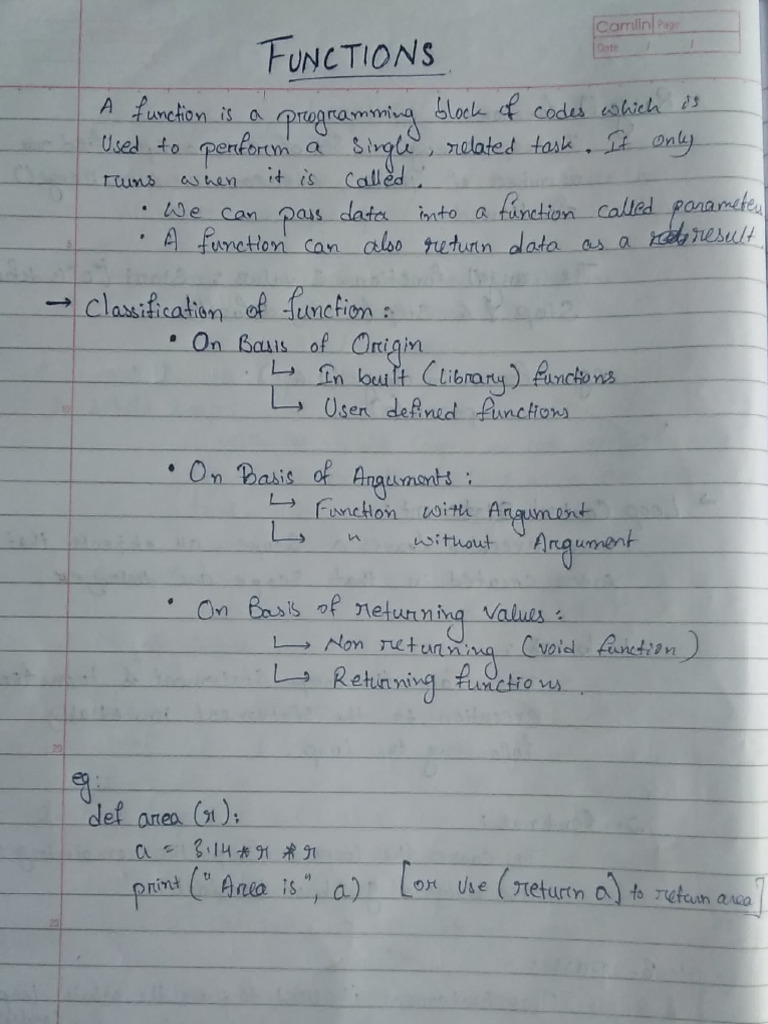 Camlin Page
Date / /
FUNCTIONS
A function is a programming block of codes which is
Used to perform a single, related task. It only
runs when it is called.
• We can pass data into a function called parameter
• A function can also return data as a result
→ Classification of function:
• On Basis of Origin
↳ In built (library) functions
↳ User defined functions
• On Basis of Arguments:
↳ Function with Argument
↳ " without Argument
• On Basis of returning values:
↳ Non returning (void function)
↳ Returning functions.
eg:
def area (r):
a = 3.14 * r * r
print ("Area is", a) [or use (return a) to return area]